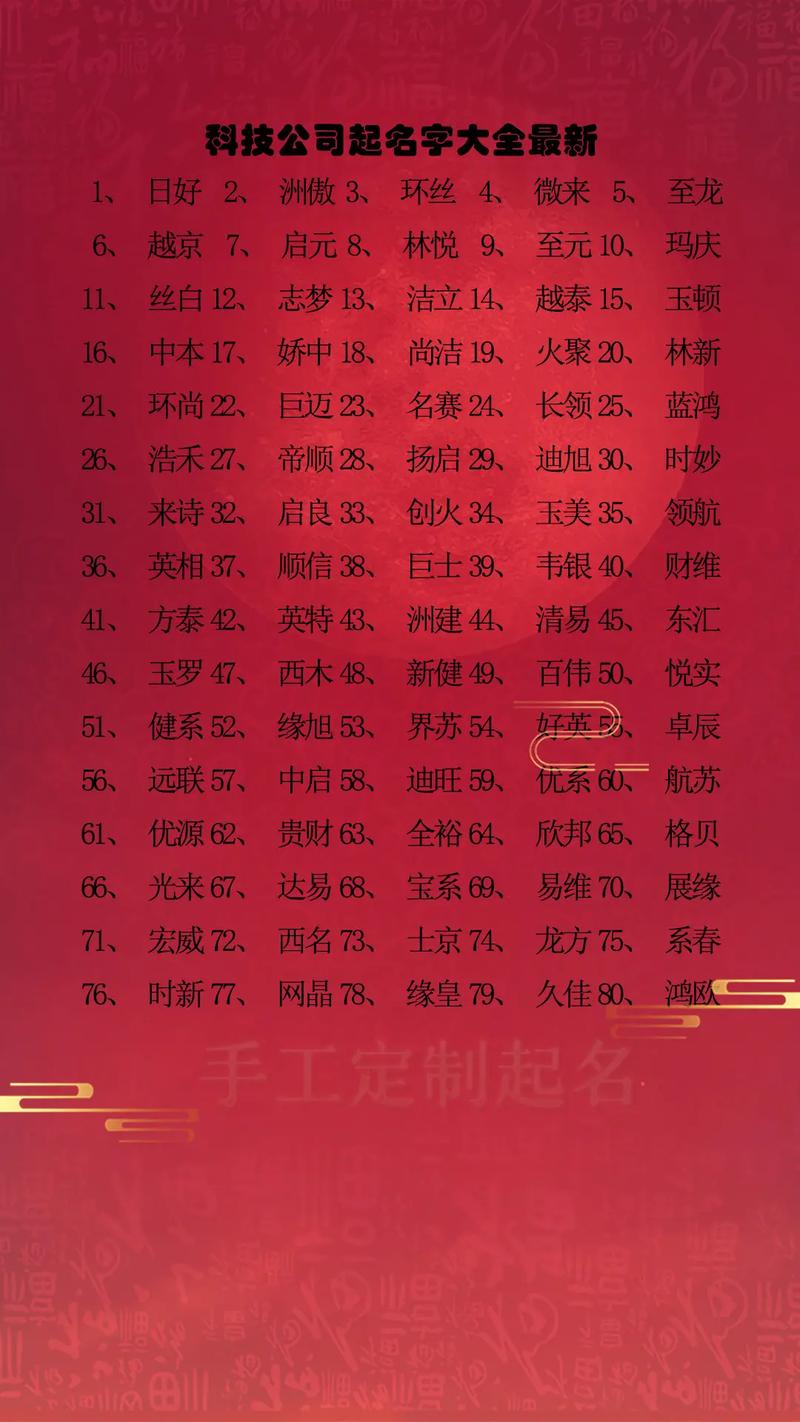 科技公司起名字大全最新
1、 日好 2、 洲傲 3、 环丝 4、 微来 5、 至龙
6、 越京 7、 启元 8、 林悦 9、 至元 10、 玛庆
11、 丝白 12、 志梦 13、 洁立 14、 越泰 15、 玉顿
16、 中本 17、 娇中 18、 尚洁 19、 火聚 20、 林新
21、 环尚 22、 巨迈 23、 名赛 24、 长领 25、 蓝鸿
26、 浩禾 27、 帝顺 28、 扬启 29、 迪旭 30、 时妙
31、 来诗 32、 启良 33、 创火 34、 玉美 35、 领航
36、 英相 37、 顺信 38、 巨士 39、 韦银 40、 财维
41、 方泰 42、 英特 43、 洲建 44、 清易 45、 东汇
46、 玉罗 47、 西木 48、 新健 49、 百伟 50、 悦实
51、 健系 52、 缘旭 53、 界苏 54、 好英 55、 卓辰
56、 远联 57、 中启 58、 迪旺 59、 优系 60、 航苏
61、 优源 62、 贵财 63、 全裕 64、 欣邦 65、 格贝
66、 光来 67、 达易 68、 宝系 69、 易维 70、 展缘
71、 宏威 72、 西名 73、 士京 74、 龙方 75、 系春
76、 时新 77、 网晶 78、 缘皇 79、 久佳 80、 鸿欧
手工定制起名